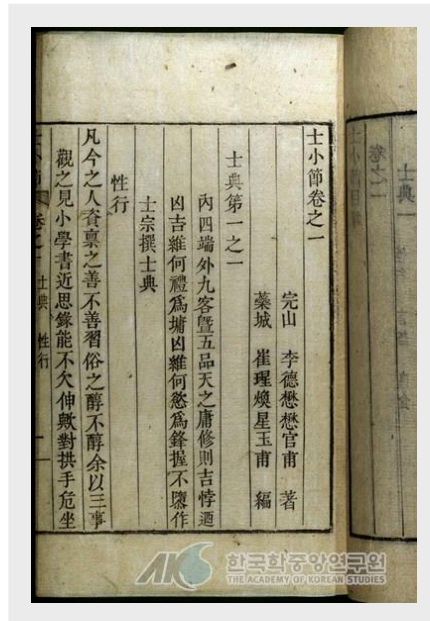 士典一
卷之一
士小節卷之一
完山 李德懋懋官甫 著
蘂城 崔瑆煥星玉甫 編
士典第一之一
內四端外九容曁五品天之庸修則吉悖迺
凶吉維何禮爲墉凶維何慾爲鋒握不墮作
士宗撰士典
性行
凡今之人資稟之善不善習俗之醇不醇余以三事
觀之見小學書近思錄能不欠伸歟對拱手危坐
士小節 卷之一 士典 性行 一
AKS 한국학중앙연구원
THE ACADEMY OF KOREAN STUDIES